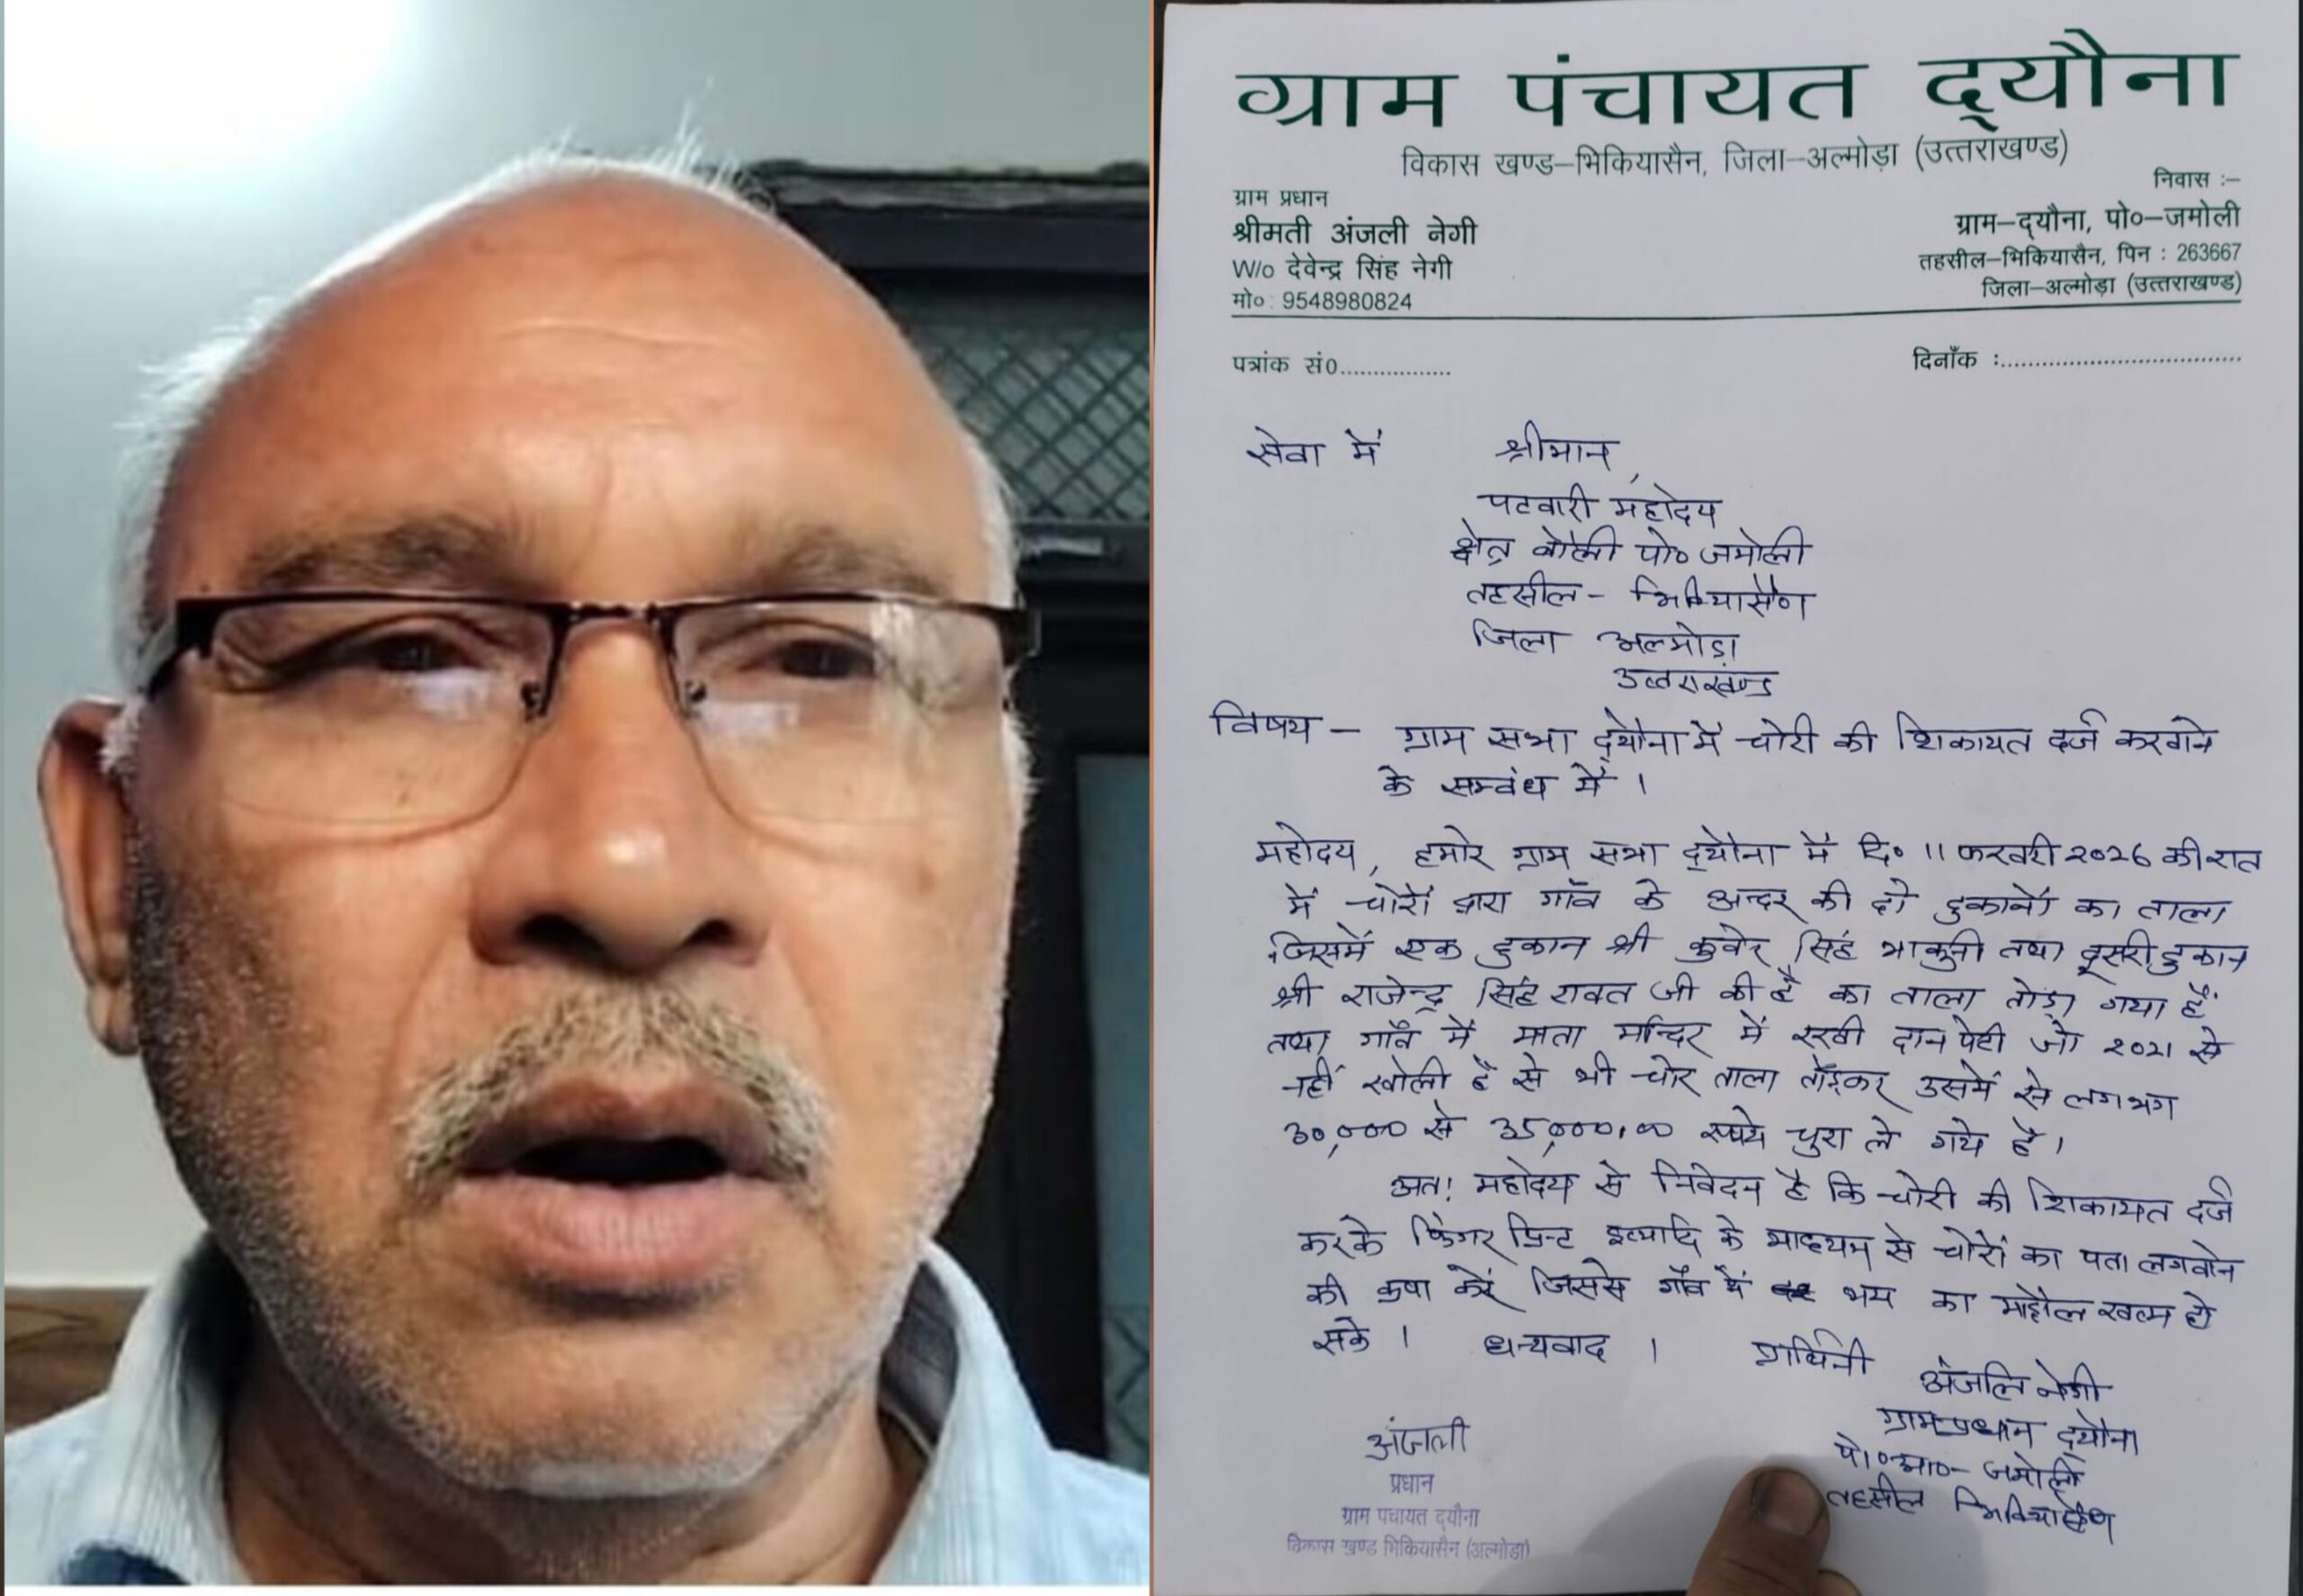 ग्राम पंचायत द्यौना
विकास खण्ड–भिकियासैन, जिला–अल्मोड़ा (उत्तराखण्ड)
ग्राम प्रधान
श्रीमती अंजली नेगी
W/o देवेन्द्र सिंह नेगी
मो० : 9548980824
निवास :–
ग्राम–द्यौना, पो०–जमोली
तहसील–भिकियासैन, पिन : 263667
जिला–अल्मोड़ा (उत्तराखण्ड)
पत्रांक सं०.................
दिनाँक :...................................
सेवा में श्रीमान,
पटवारी महोदय
क्षेत्र पो० जमोली
तहसील - भिकियासैंण
जिला अल्मोड़ा
उत्तराखंण्ड
विषय – ग्राम सभा द्यौना में चोरी की शिकायत दर्ज करवाने
के सम्बंध में ।
महोदय, हमारे ग्राम सभा द्यौना में दि० 11 फरवरी 2026 की रात
में चोरों द्वारा गाँव के अन्दर की दो दुकानों का ताला
जिसमें एक दुकान श्री कुवेर सिंह भाकुनी तथा दूसरी दुकान
श्री राजेन्द्र सिंह रावत जी की है का ताला तोड़ा गया है
तथा गाँव में माता मन्दिर में रखी दान पेटी जो 2021 से
नहीं खोली है से भी चोर ताला तोड़कर उसमें से लगभग
30,000 से 35,000.00 रूपये चुरा ले गये है ।
अतः महोदय से निवेदन है कि चोरी की शिकायत दर्ज
करके फिंगर प्रिन्ट इत्यादि के माध्यम से चोरों का पता लगवाने
की कृपा करें जिससे गाँव में भय का माहौल खत्म हो
सके । धन्यवाद । प्रार्थिनी
अंजलि नेगी
ग्राम प्रधान द्यौना
पो०आ०- जमोली
तहसील भिकियासैंण
अंजली
प्रधान
ग्राम पंचायत द्यौना
विकास खण्ड भिकियासैन (अल्मोड़ा)